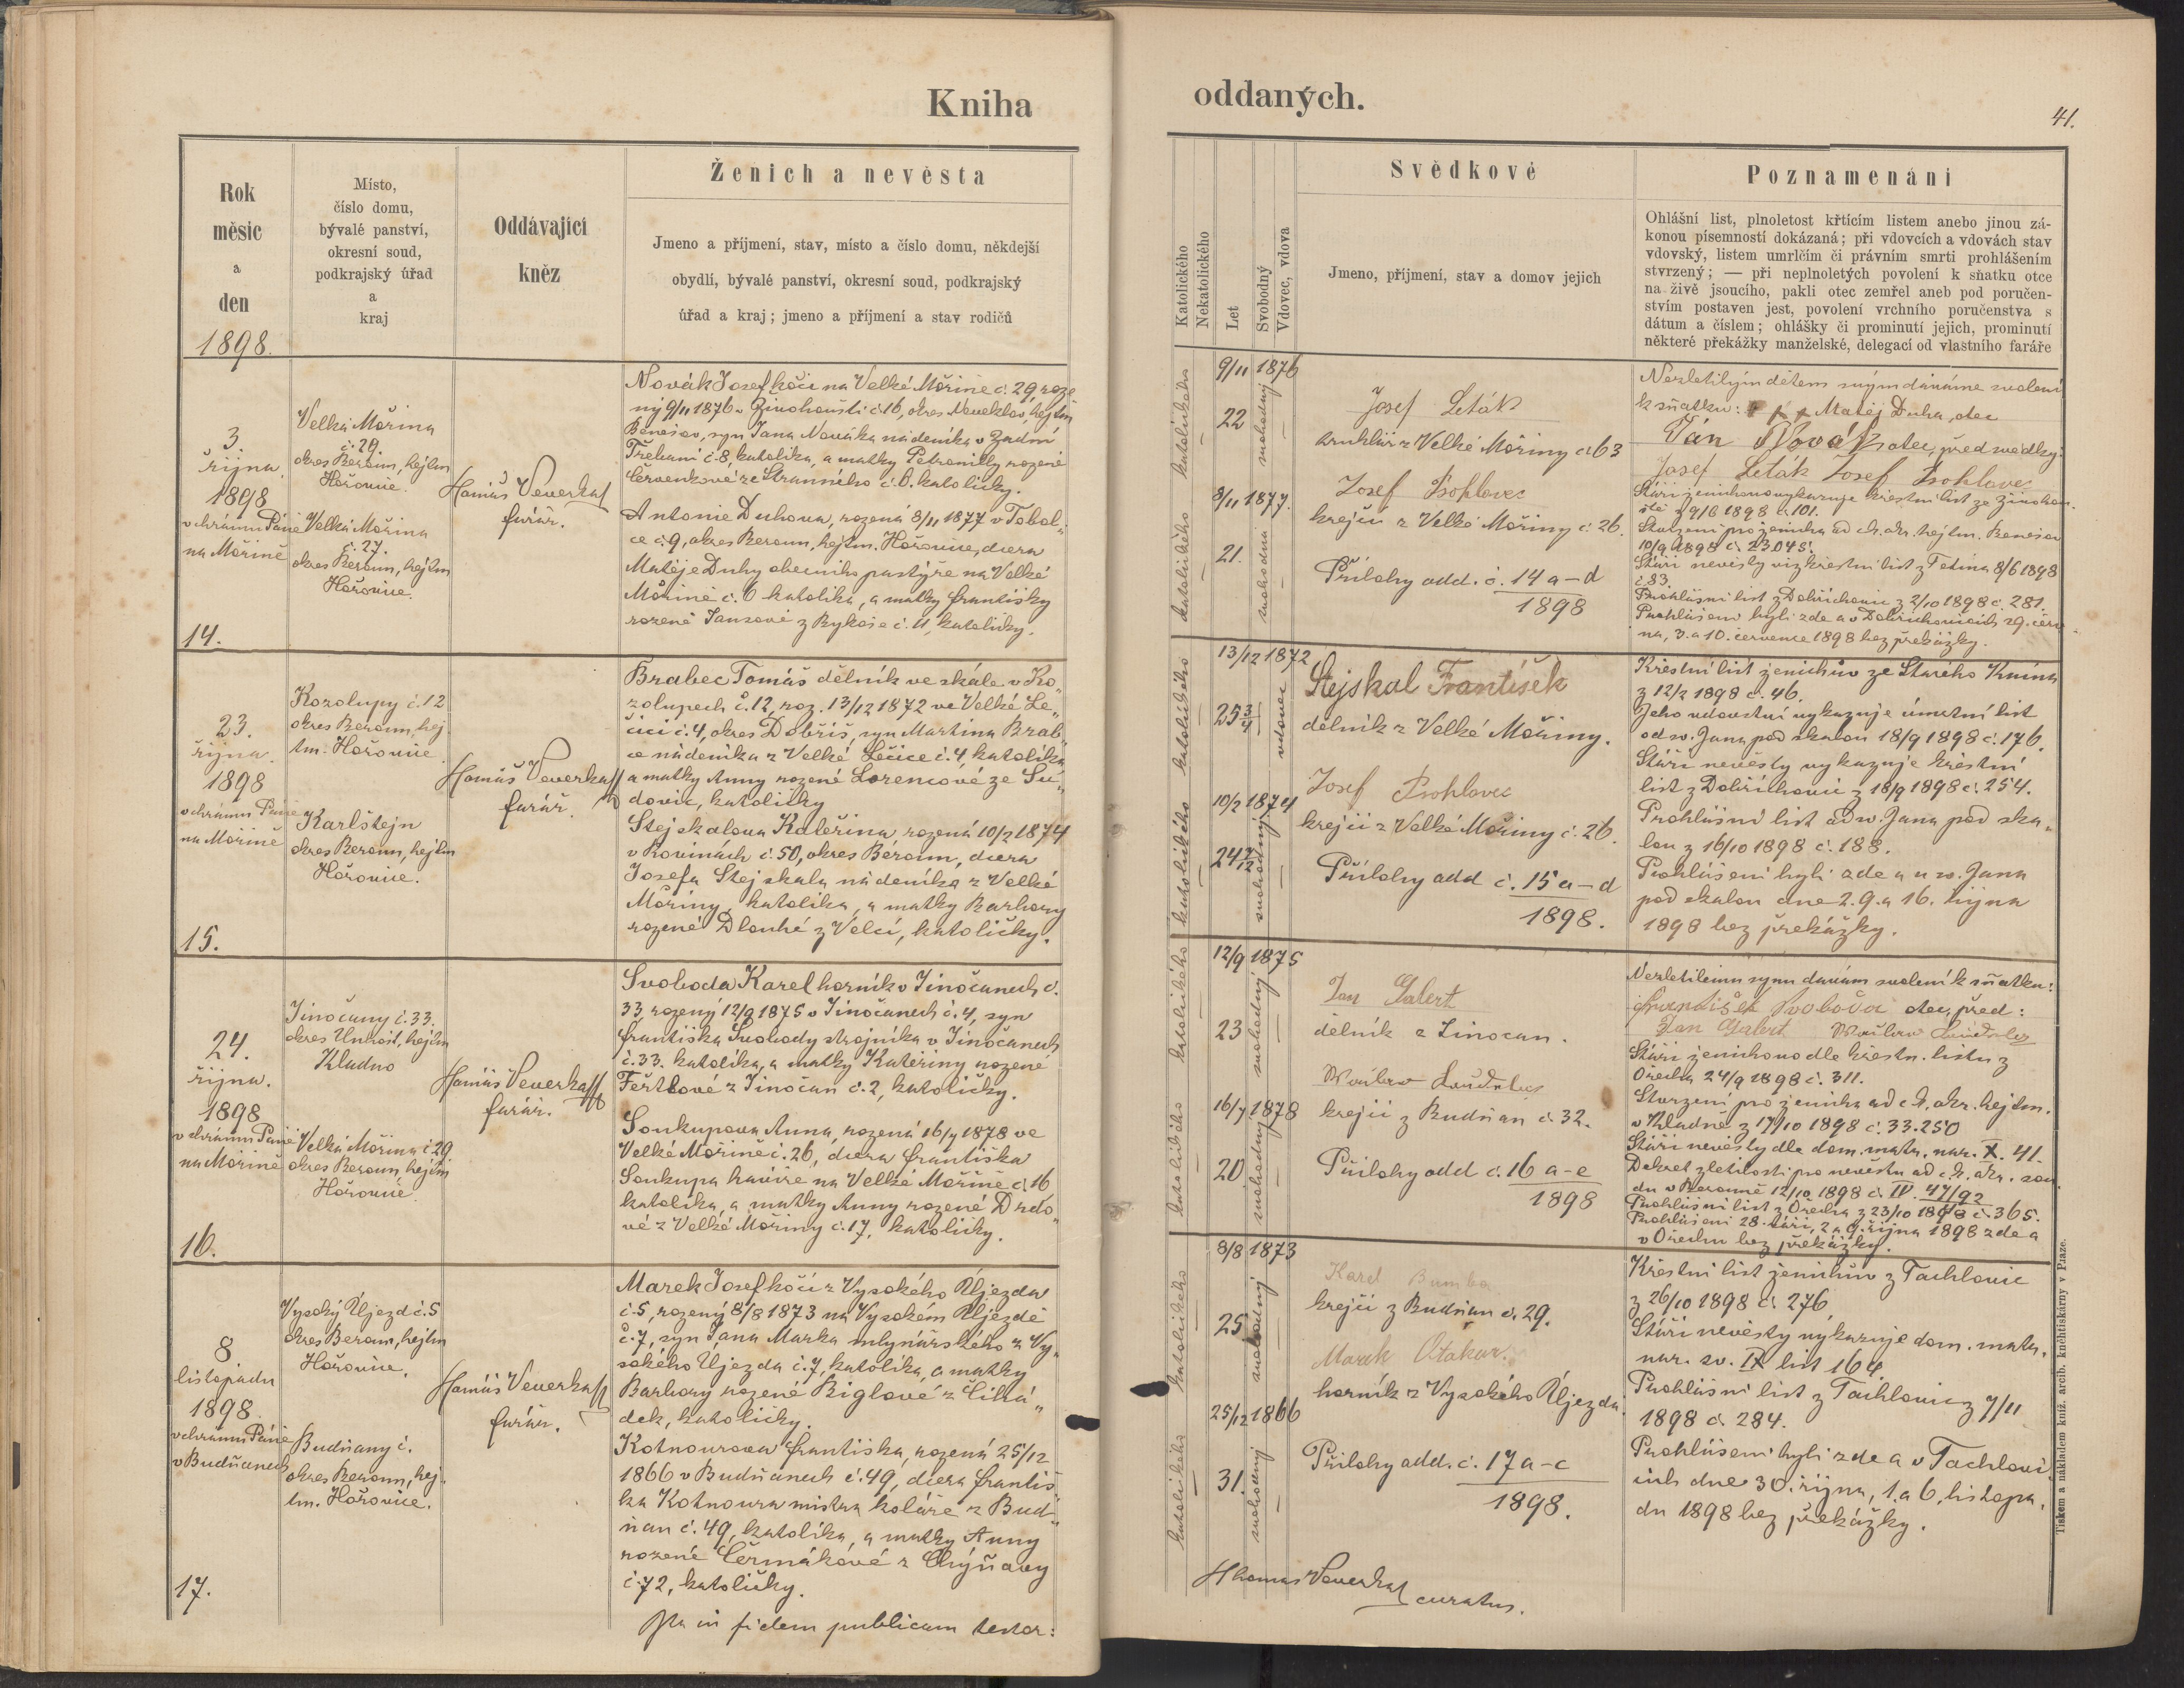 Kniha
Rok
měsíc
a
den
1898.
Místo,
číslo domu,
bývalé panství,
okresní soud,
podkrajský úřad
a
kraj
Oddávající
kněz
Ženich a nevěsta
Jmeno a příjmení, stav, místo a číslo domu, někdejší
obydlí, bývalé panství, okresní soud, podkrajský
úřad a kraj; jmeno a příjmení a stav rodičů
3.
října
1898
v chrámu Páně
na Mořině
14.
Velká Mořina
č. 29.
okres Beroun, hejtm
Hořovice.
Velká Mořina
č. 27.
okres Beroun, hejtm
Hořovice.
Tomáš Veverka
farář.
Novák Josef kočí na Velké Mořině č. 29, roze
ný 9/11 1876 v č. 16, okres Neveklov, hejtm
Benešov, syn Jana Nováka nádeníka v Zadní
Třebani č. 8, katolíka, a matky Petronilly rozené
Červenkové ze Stranného č. 6, katoličky.
Antonie Duhova, rozená 8/11 1877 v Tobol„
ce č. 9, okres Beroun, hejtm. Hořovice, dcera
Matěje Duhy obecního pastýře na Velké
Mořině č. 6 katolíka, a matky Františky
rozené Jansové z Bykoše č. 11, katoličky.
23.
října
1898
v chrámu Páně
na Mořině
15.
Kozolupy č. 12
okres Beroun, hej
tm. Hořovice
Karlštejn
okres Beroun, hejtm
Hořovice.
Tomáš Veverka
farář.
Brabec Tomáš dělník ve skále v Ko„
zolupech č. 12, roz. 13/12 1872 ve Velké Le„
čici č. 4, okres Dobříš, syn Martina Brab„
ce nádeníka z Velké Lečice č. 4, katolíka
a matky Anny rozené Lorencové ze Su„
dovic, katoličky
Stejskalova Kateřina rozená 10/2 1874
v Rovinách č. 50, okres Beroun, dcera
Josefa Stejskala nádeníka z Velké
Mořiny, katolíka, a matky Barbory
rozené Dlouhé z Velcí, katoličky.
24.
října.
1898
v chrámu Páně
na Mořině
16.
Jinočany č. 33.
okres Unhošť, hejtm
Kladno
Velká Mořina č 29
okres Beroun, hejtm
Hořovice.
Tomáš Veverka
farář.
Svoboda Karel horník v Jinočanech č.
33, rozený 12/9 1875 v Jinočanech č. 4, syn
Františka Svobody strojníka v Jinočanech
č. 33. katolíka, a matky Kateřiny rozené
Fértlové z Jinočan č. 2, katoličky.
Soukupova Anna, rozená 16/7 1878 ve
Velké Mořině č. 26, dcera Františka
Soukupa havíře na Velké Mořině č. 16
katolíka, a matky Anny rozené Drdo„
vé z Velké Mořiny č. 17, katoličky.
8
listopadu
1898
v chrámu Páně
v Budňanech
17.
Vysoký Újezd č. 5
okres Beroun, hejtm
Hořovice.
Budňany č.
okres Beroun, hej
tm. Hořovice.
Tomáš Veverka
farář.
Marek Josef kočí z Vysokého Újezda
č. 5, rozený 8/8 1873 na Vysokém Újezdě
č. 7, syn Jana Marka mlynářského z Vy„
sokého Újezda č. 7, katolíka, a matky
Barbory rozené Biglové z Lhá„
dek, katoličky.
Kotnourova Františka, rozená 25/12
1866 v Budňanech č. 49, dcera Františ„
ka Kotnoura mistra koláře z Bud„
ňan č. 49, katolíka, a matky Anny
rozené Čermákové z Chýňavy
č. 72, katoličky.
Ita in fidem publicam testor:
oddaných.
41.
Katolického
Nekatolického
Let
Svobodný
Vdovec, vdova
Svědkové
Jmeno, příjmení, stav a domov jejich
Poznamenání
Ohlášní list, plnoletost křtícím listem anebo jinou zá-
konou písemností dokázaná; při vdovcích a vdovách stav
vdovský, listem umrlčím či právním smrti prohlášením
stvrzený; — při neplnoletých povolení k sňatku otce
na živě jsoucího, pakli otec zemřel aneb pod poručen-
stvím postaven jest, povolení vrchního poručenstva s
dátum a číslem; ohlášky či prominutí jejich, prominutí
některé překážky manželské, delegací od vlastního faráře
katolického
9/11 1876
22
svobodný
katolického
8/11 1877.
21.
svobodna
Josef Leták
truhlář z Velké Mořiny č. 63
Josef Prohlovec
krejčí z Velké Mořiny č. 26.
Přílohy odd. č. 14 a–d
1898
Nezletilým dětem svým dáváme svolení
k sňatku: + + + Matěj Duha, otec
Ján Novák otec, před svědky:
Josef Leták Josef Prohlovec
Stáří ženichovo vykazuje křestní list ze
z 9/6 1898 č. 101.
Stvrzení pro ženicha od ck. okr. hejtm. Benešov
10/9 1898 č. 23045.
Stáří nevěsty viz křestní list z Tetína 8/6 1898
č. 83.
Prohlášní list z Dobřichovic z 2/10 1898 č. 281.
Prohlášeni byli zde a v Dobřichovicích 29. červ
na, 3. a 10. července 1898 bez překážky.
katolického
13/12 1872
25 3/4
vdovec
katolického
10/2 1874
24
svobodný
Stejskal František
dělník z Velké Mořiny.
Josef Prohlovec
krejčí z Velké Mořiny č. 26.
Přílohy odd č. 15 a–d
1898.
Křestní list ženichův ze Starého Knína
z 12/2 1898 č. 46.
Jeho vdovství vykazuje úmrtní list
od sv. Jana pod skalou 18/9 1898 č. 176.
Stáří nevěsty vykazuje křestní
list z Dobřichovic z 18/9 1898 č. 254.
Prohlášní list od sv. Jana pod ska„
lou z 16/10 1898 č. 188.
Prohlášeni byli zde a u sv. Jana
pod skalou dne 2. 9. a 16. října
1898 bez překážky.
katolického
12/9 1875
23
svobodný
katolického
16/7 1878
20
svobodný
Jan Galert
dělník z Jinočan.
krejčí z Budňan č. 32.
Přílohy odd č. 16 a–e
1898
Nezletilému synu dávám svolení k sňatku:
František Svoboda otec, před:
Jan Galert
Stáří ženichovo dle křestn. listu z
Ořecha 24/9 1898 č. 311.
Stvrzení pro ženicha od c k. okr. hejtm.
v Kladně z 17/10 1898 č. 33.250
Stáří nevěsty dle dom. matr. nar. X. 41.
Dekret zletilosti pro nevěstu od c. k. okr. sou
du v Berouně 12/10 1898 č. IV. 47/92
Prohlášní list z Ořecha z 23/10 1898 č. 365.
Prohlášeni 28. září, 2 a 9. října 1898 zde a
v Ořechu bez překážky.
katolického
8/8 1873
25
svobodný
katolického
25/12 1866
31.
svobodný
Karel Bumba
krejčí z Budňan č. 29.
Marek Otakar.
horník z Vysokého Újezda.
Přílohy odd. č. 17 a–c
1898.
Křestní list ženichův z Tachlovic
z 26/10 1898 č. 276
Stáří nevěsty vykazuje dom. matr.
nar. sv. IX list 164.
Prohlášní list z Tachlovic z 7/11
1898 č. 284.
Prohlášeni byli zde a v Tachlovi
cích dne 30. října, 1. a 6. listopa„
du 1898 bez překážky.
Thomas Veverka
curatus.
Tiskem a nákladem kníž. arcib. knihtiskárny v Praze.